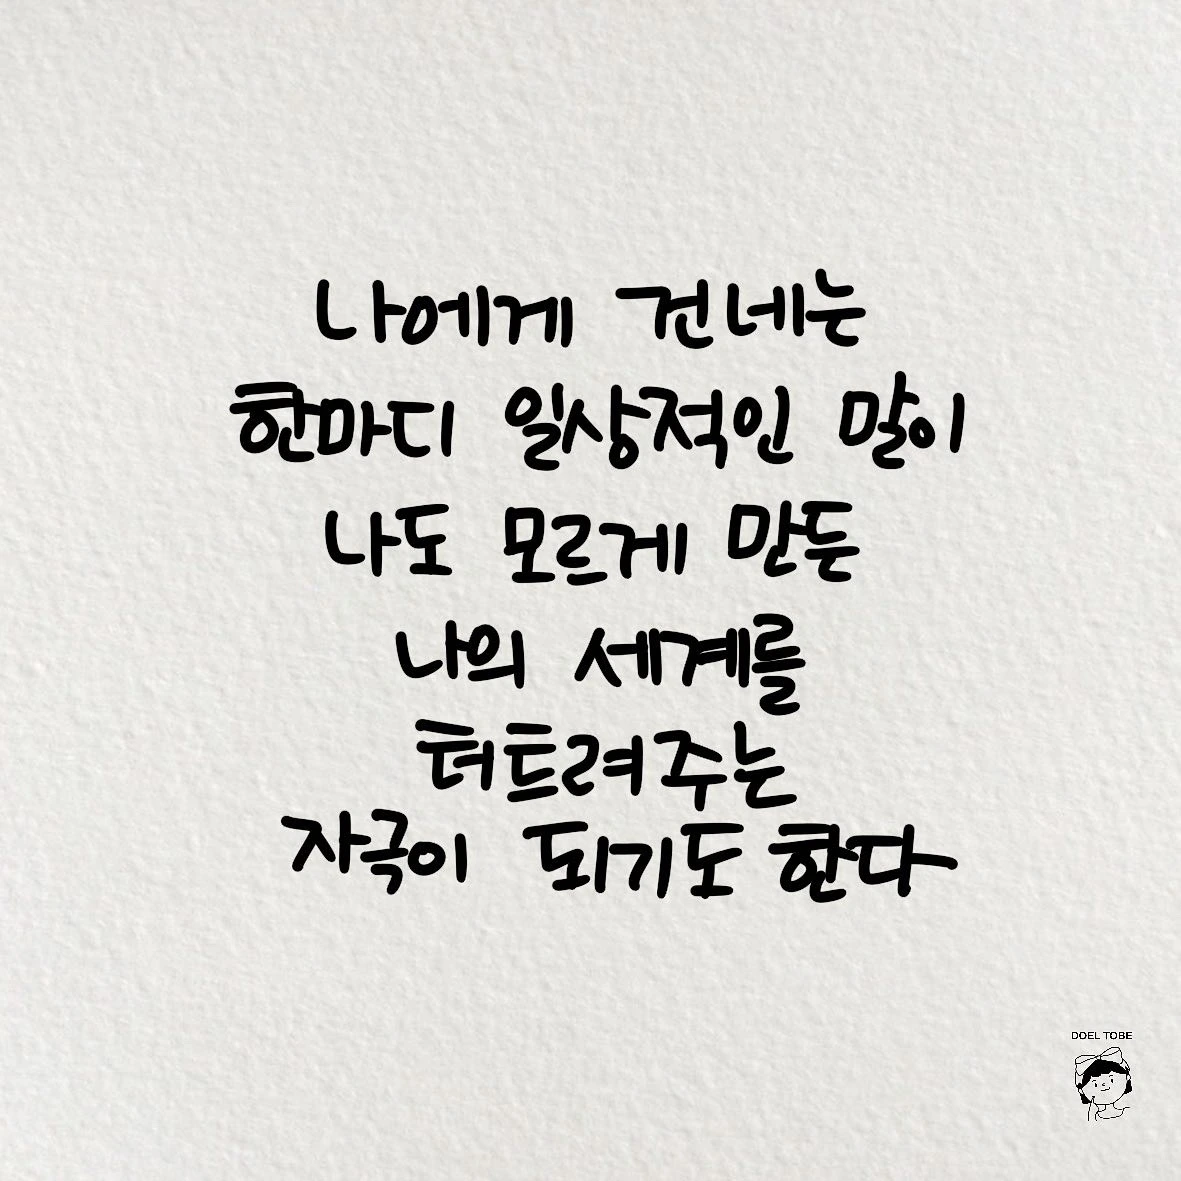 나에게 건네는
한마디 일상적인 말이
나도 모르게 만든
나의 세계를
터트려주는
자극이 되기도 한다
DOEL TOBE